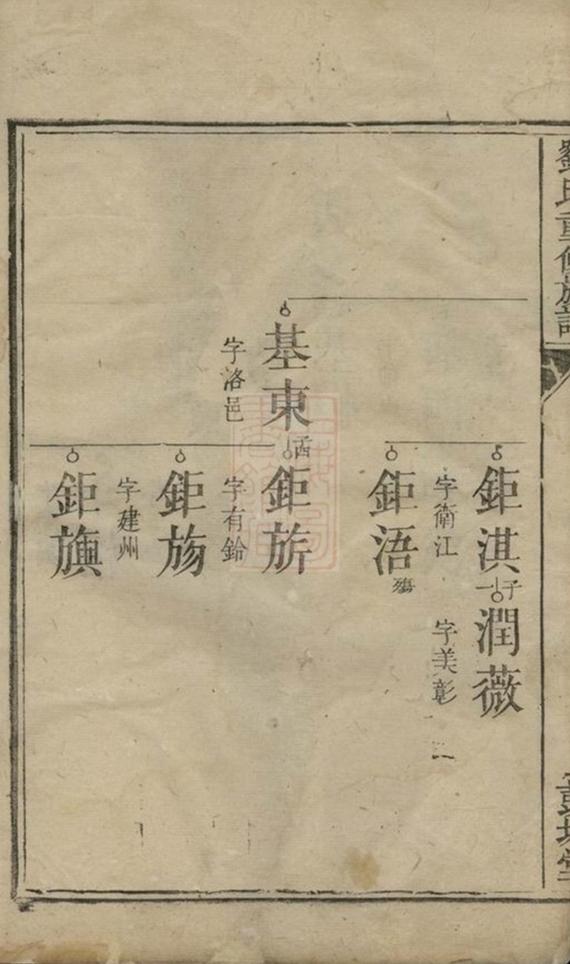 劉氏重修族譜
鉅淇
字衛江
子一
潤薇
字美彰
鉅浯
殤
基東
字洛邑
鉅旂
字有鈴
鉅旸
字建州
鉅旟